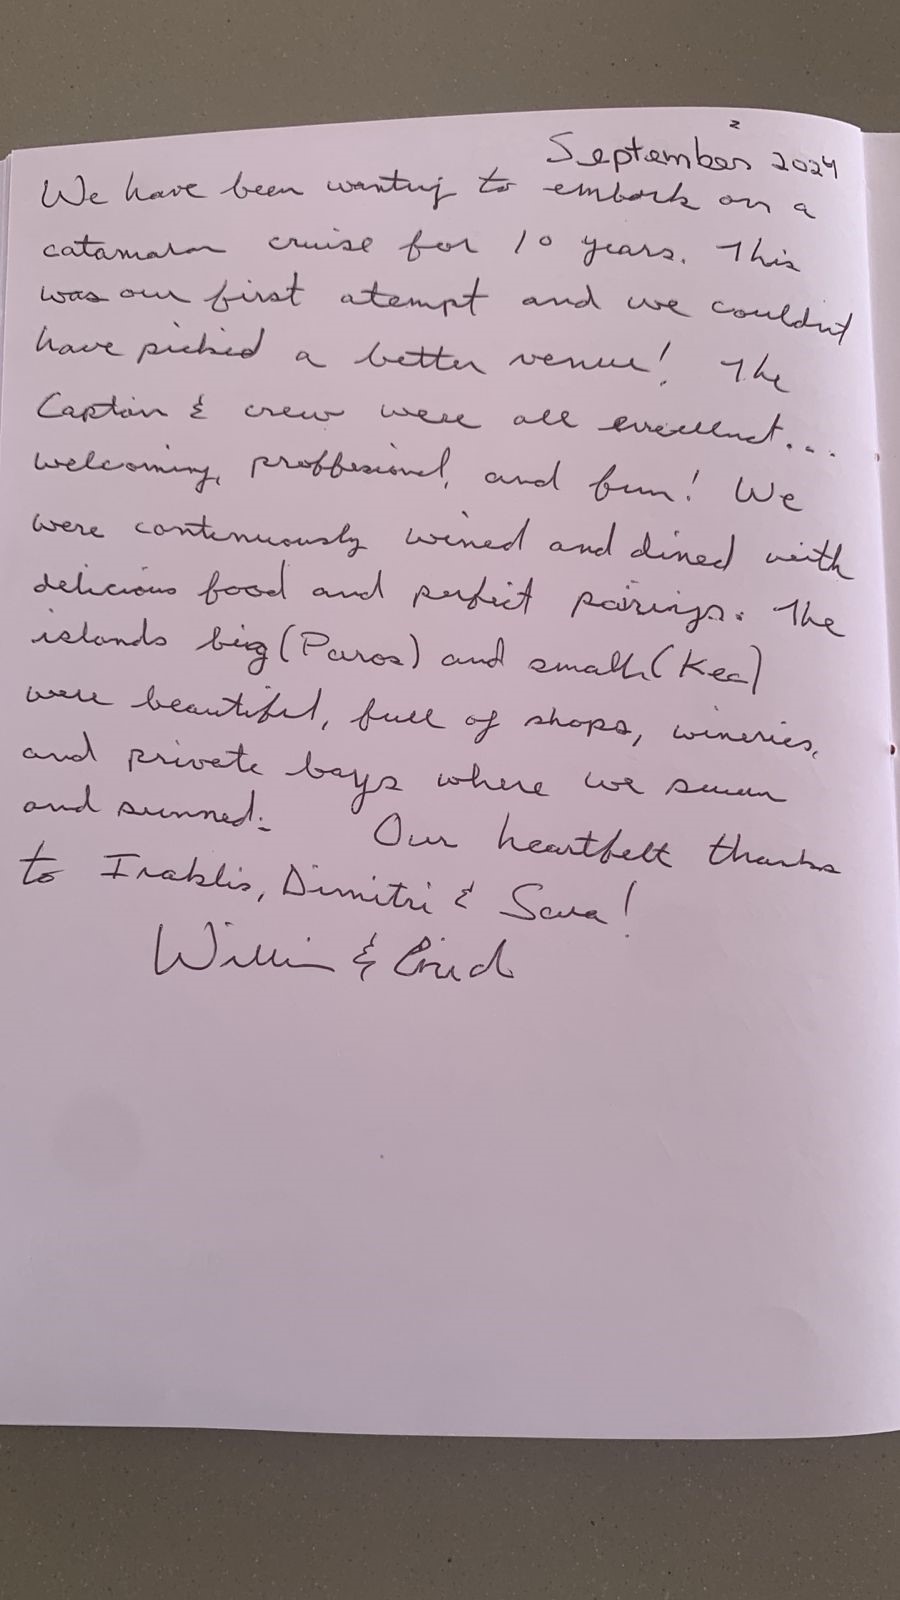 September 2024
We have been wanting to embark on a
catamaran cruise for 10 years. This
was our first atempt and we couldn't
have picked a better venue! The
Captain & crew were all excellent...
welcoming, proffesional, and fun! We
were continuously wined and dined with
delicious food and perfect pairings. The
islands big (Paros) and small (Kea)
were beautiful, full of shops, wineries,
and private bays where we swam
and sunned. Our heartfelt thanks
to Iraklis, Dimitri & Sava!
&